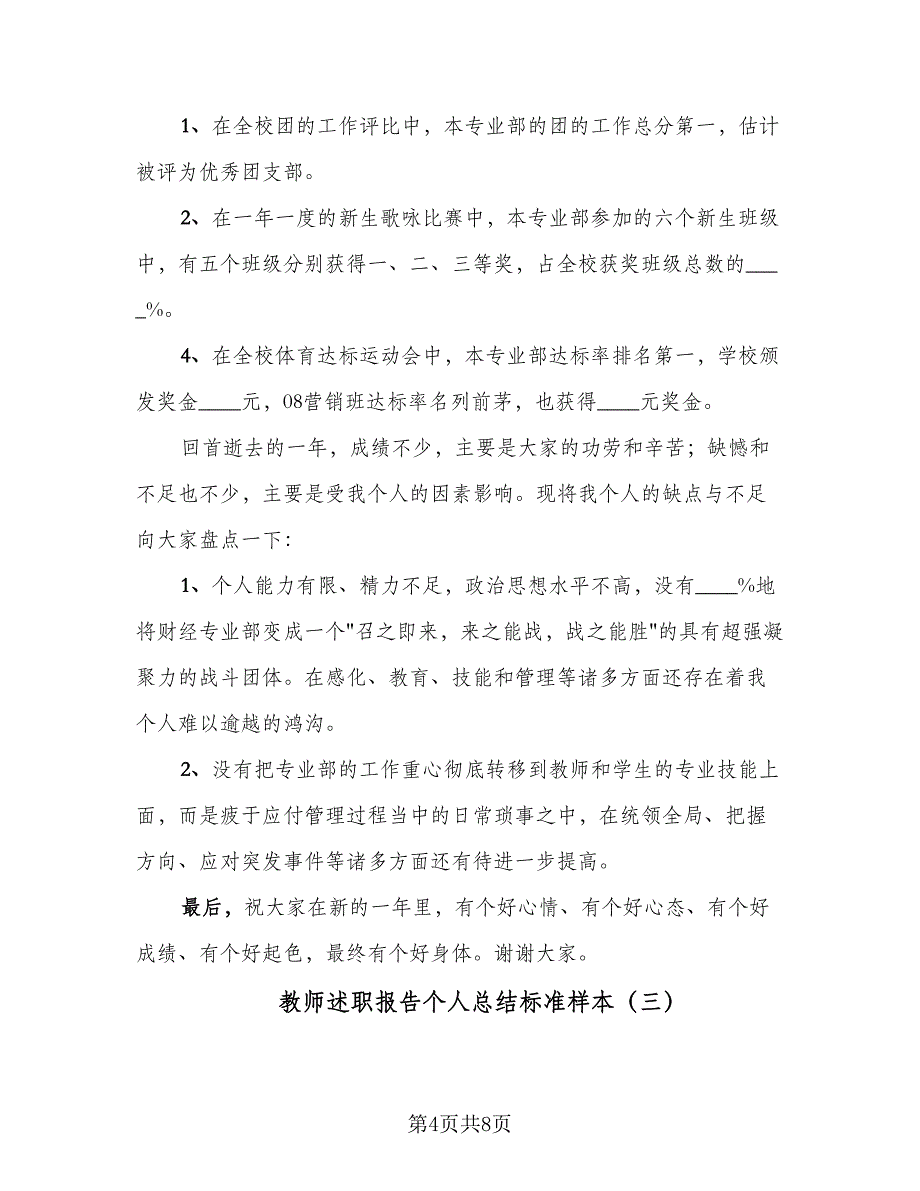 1、在全校团的工作评比中，本专业部的团的工作总分第一，估计
被评为优秀团支部。
2、在一年一度的新生歌咏比赛中，本专业部参加的六个新生班级
中，有五个班级分别获得一、二、三等奖，占全校获奖班级总数的___
_%。
4、在全校体育达标运动会中，本专业部达标率排名第一，学校颁
发奖金____元，08营销班达标率名列前茅，也获得____元奖金。
回首逝去的一年，成绩不少，主要是大家的功劳和辛苦；缺憾和
不足也不少，主要是受我个人的因素影响。现将我个人的缺点与不足
向大家盘点一下：
1、个人能力有限、精力不足，政治思想水平不高，没有____%地
将财经专业部变成一个"召之即来，来之能战，战之能胜"的具有超强凝
聚力的战斗团体。在感化、教育、技能和管理等诸多方面还存在着我
个人难以逾越的鸿沟。
2、没有把专业部的工作重心彻底转移到教师和学生的专业技能上
面，而是疲于应付管理过程当中的日常琐事之中，在统领全局、把握
方向、应对突发事件等诸多方面还有待进一步提高。
最后，祝大家在新的一年里，有个好心情、有个好心态、有个好
成绩、有个好起色，最终有个好身体。谢谢大家。
教师述职报告个人总结标准样本（三）
第4页共8页